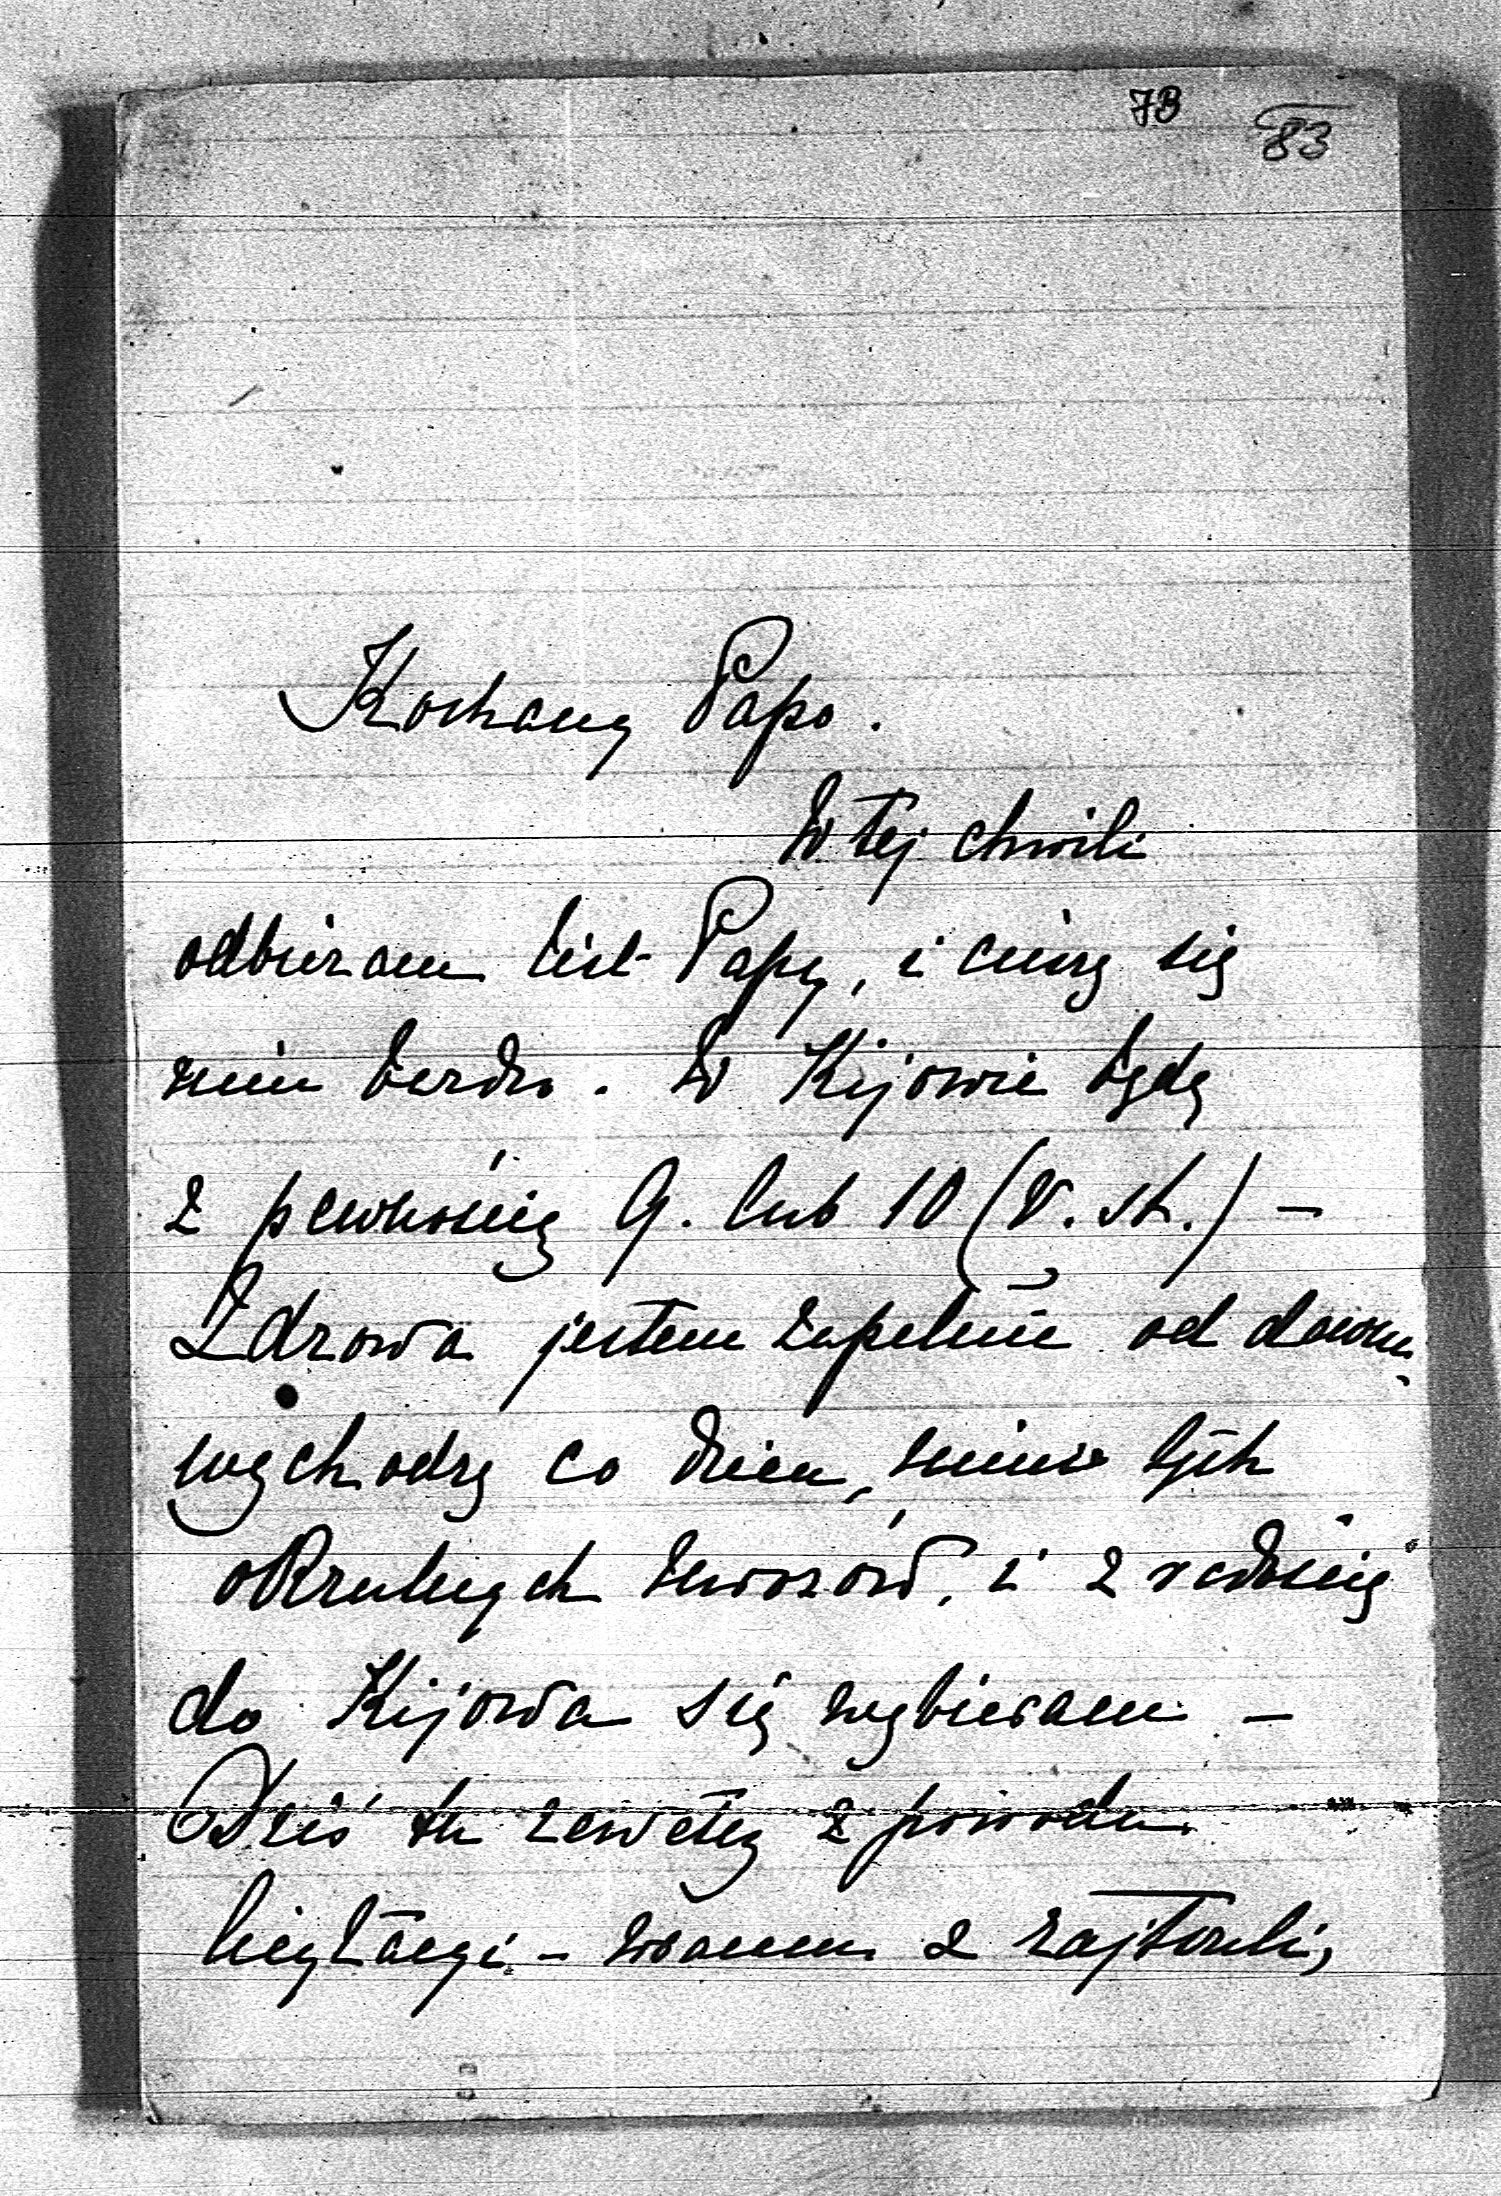 JB 83
Kochany Papo.
W tej chwili
odbieram list Papy, i cieszę się
nim bardzo. W Kijowie będę
z pewnością 9. lub 10 (v. st.) –
Zdrowa jestem zupełnie od dawna,
wychodzę co dzień, mimo tych
okrutnych mrozów, i z radością
do Kijowa się wybieram –
Dziś tu z powodu
licytacyi –